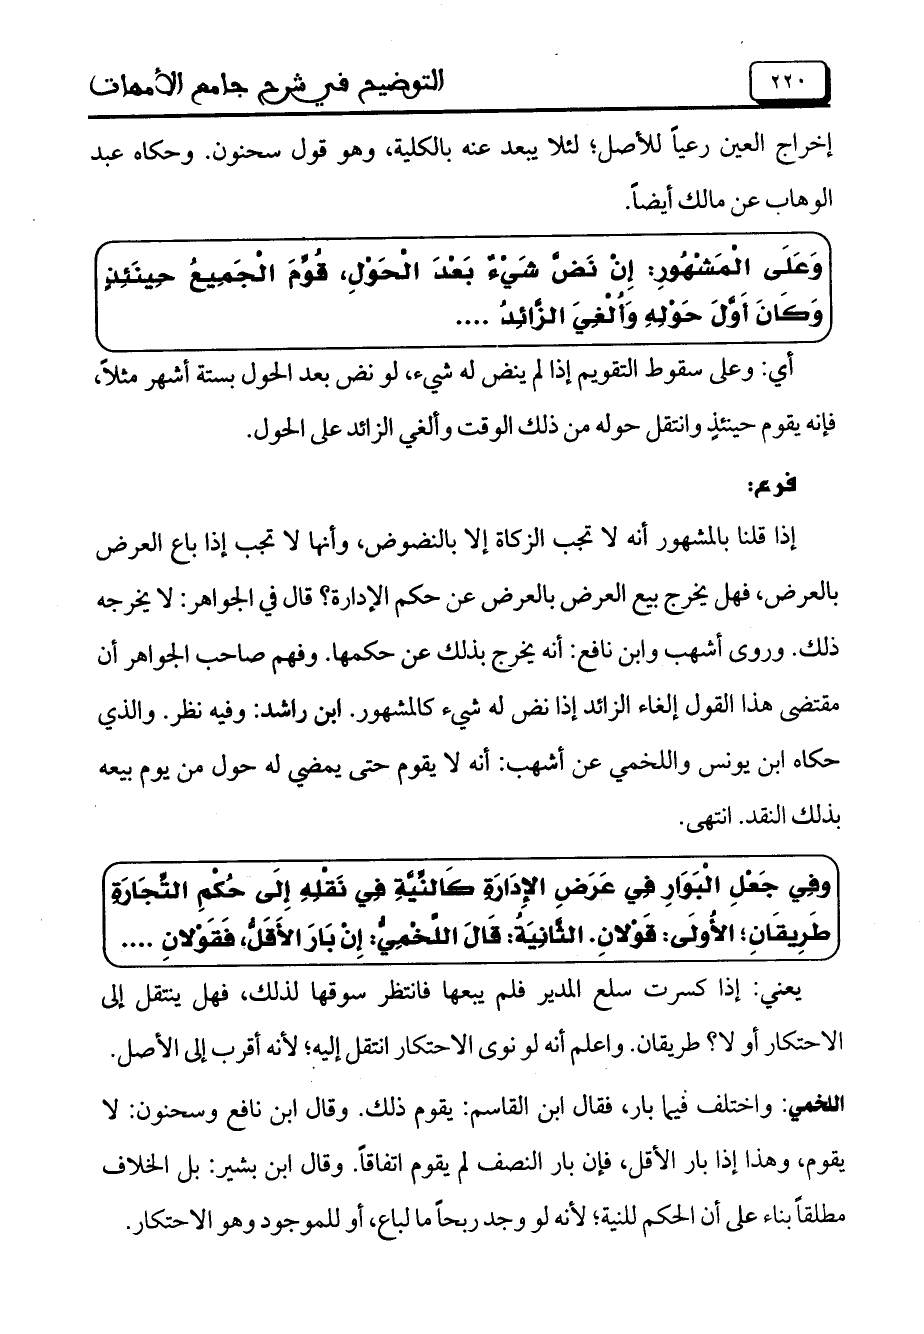 ٢٢٠
التوضيح في شرح جامع الأمهات
إخراج العين رعياً للأصل؛ لئلا يبعد عنه بالكلية، وهو قول سحنون. وحكاه عبد
الوهاب عن مالك أيضاً.
وَعَلَى الْمَشْهُورِ: إِنْ نَضَّ شَيْءٌ بَعْدَ الْحَوْلِ، قُوِّمَ الْجَمِيعُ حِينَئِذٍ
وَكَانَ أَوَّلَ حَوْلِهِ وَأُلْغِيَ الزَّائِدُ ....
أي: وعلى سقوط التقويم إذا لم ينض له شيء، لو نض بعد الحول بستة أشهر مثلاً،
فإنه يقوم حينئذٍ وانتقل حوله من ذلك الوقت وألغي الزائد على الحول.
فرع:
إذا قلنا بالمشهور أنه لا تجب الزكاة إلا بالنضوض، وأنها لا تجب إذا باع العرض
بالعرض، فهل يخرج بيع العرض بالعرض عن حكم الإدارة؟ قال في الجواهر: لا يخرجه
ذلك. وروى أشهب وابن نافع: أنه يخرج بذلك عن حكمها. وفهم صاحب الجواهر أن
مقتضى هذا القول إلغاء الزائد إذا نض له شيء كالمشهور. ابن راشد: وفيه نظر. والذي
حكاه ابن يونس واللخمي عن أشهب: أنه لا يقوم حتى يمضي له حول من يوم بيعه
بذلك النقد. انتهى.
وفِي جَعْلِ الْبَوَارِ فِي عَرَضِ الإِدَارَةِ كَالنِّيَّةِ فِي نَقْلِهِ إِلَى حُكْمِ التِّجَارَةِ
طَرِيقَانِ؛ الأُولَى: قَوْلانِ. الثَّانِيَةُ: قَالَ اللَّخْمِيُّ: إِنْ بَارَ الأَقَلُّ، فَقَوْلانِ ....
يعني: إذا كسرت سلع المدير فلم يبعها فانتظر سوقها لذلك، فهل ينتقل إلى
الاحتكار أو لا؟ طريقان. واعلم أنه لو نوى الاحتكار انتقل إليه؛ لأنه أقرب إلى الأصل.
اللخمي: واختلف فيما بار، فقال ابن القاسم: يقوم ذلك. وقال ابن نافع وسحنون: لا
يقوم، وهذا إذا بار الأقل، فإن بار النصف لم يقوم اتفاقاً. وقال ابن بشير: بل الخلاف
مطلقاً بناء على أن الحكم للنية؛ لأنه لو وجد ربحاً ما لباع، أو للموجود وهو الاحتكار.